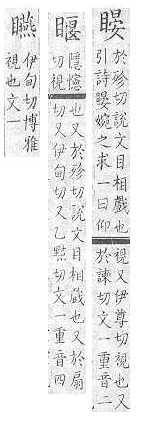 䁙
於殄切說文目相戲也
引詩䁙婉之求一曰仰
視又伊尊切視也又
於諫切文一重音二
隱幰
切視
也又於殄切說文目相戲也又於扇
切又伊甸切又乙㸃切文一重音四
伊甸切博雅
視也文一